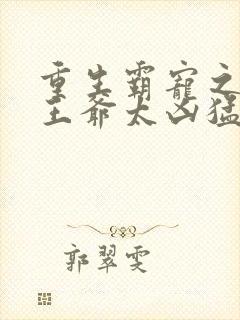 重生霸寵之
王爺太凶猛
郭翠雯